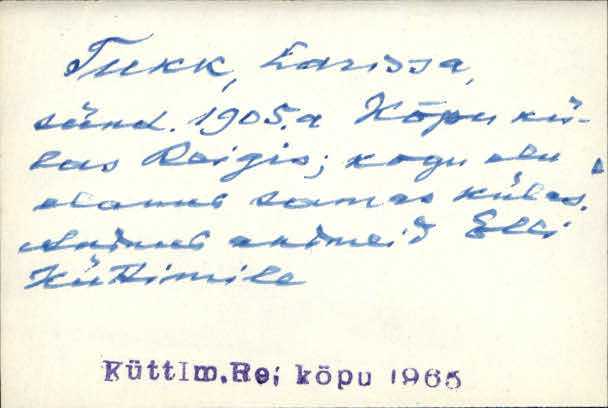 Tukk, Larissa,
sünd. 1905.a Kõpu kü-
las Reigis; kogu elu
elanud samas külas.
Andnud andmeid Elli
Küttimile
KüttIm.Re; kõpu 1965